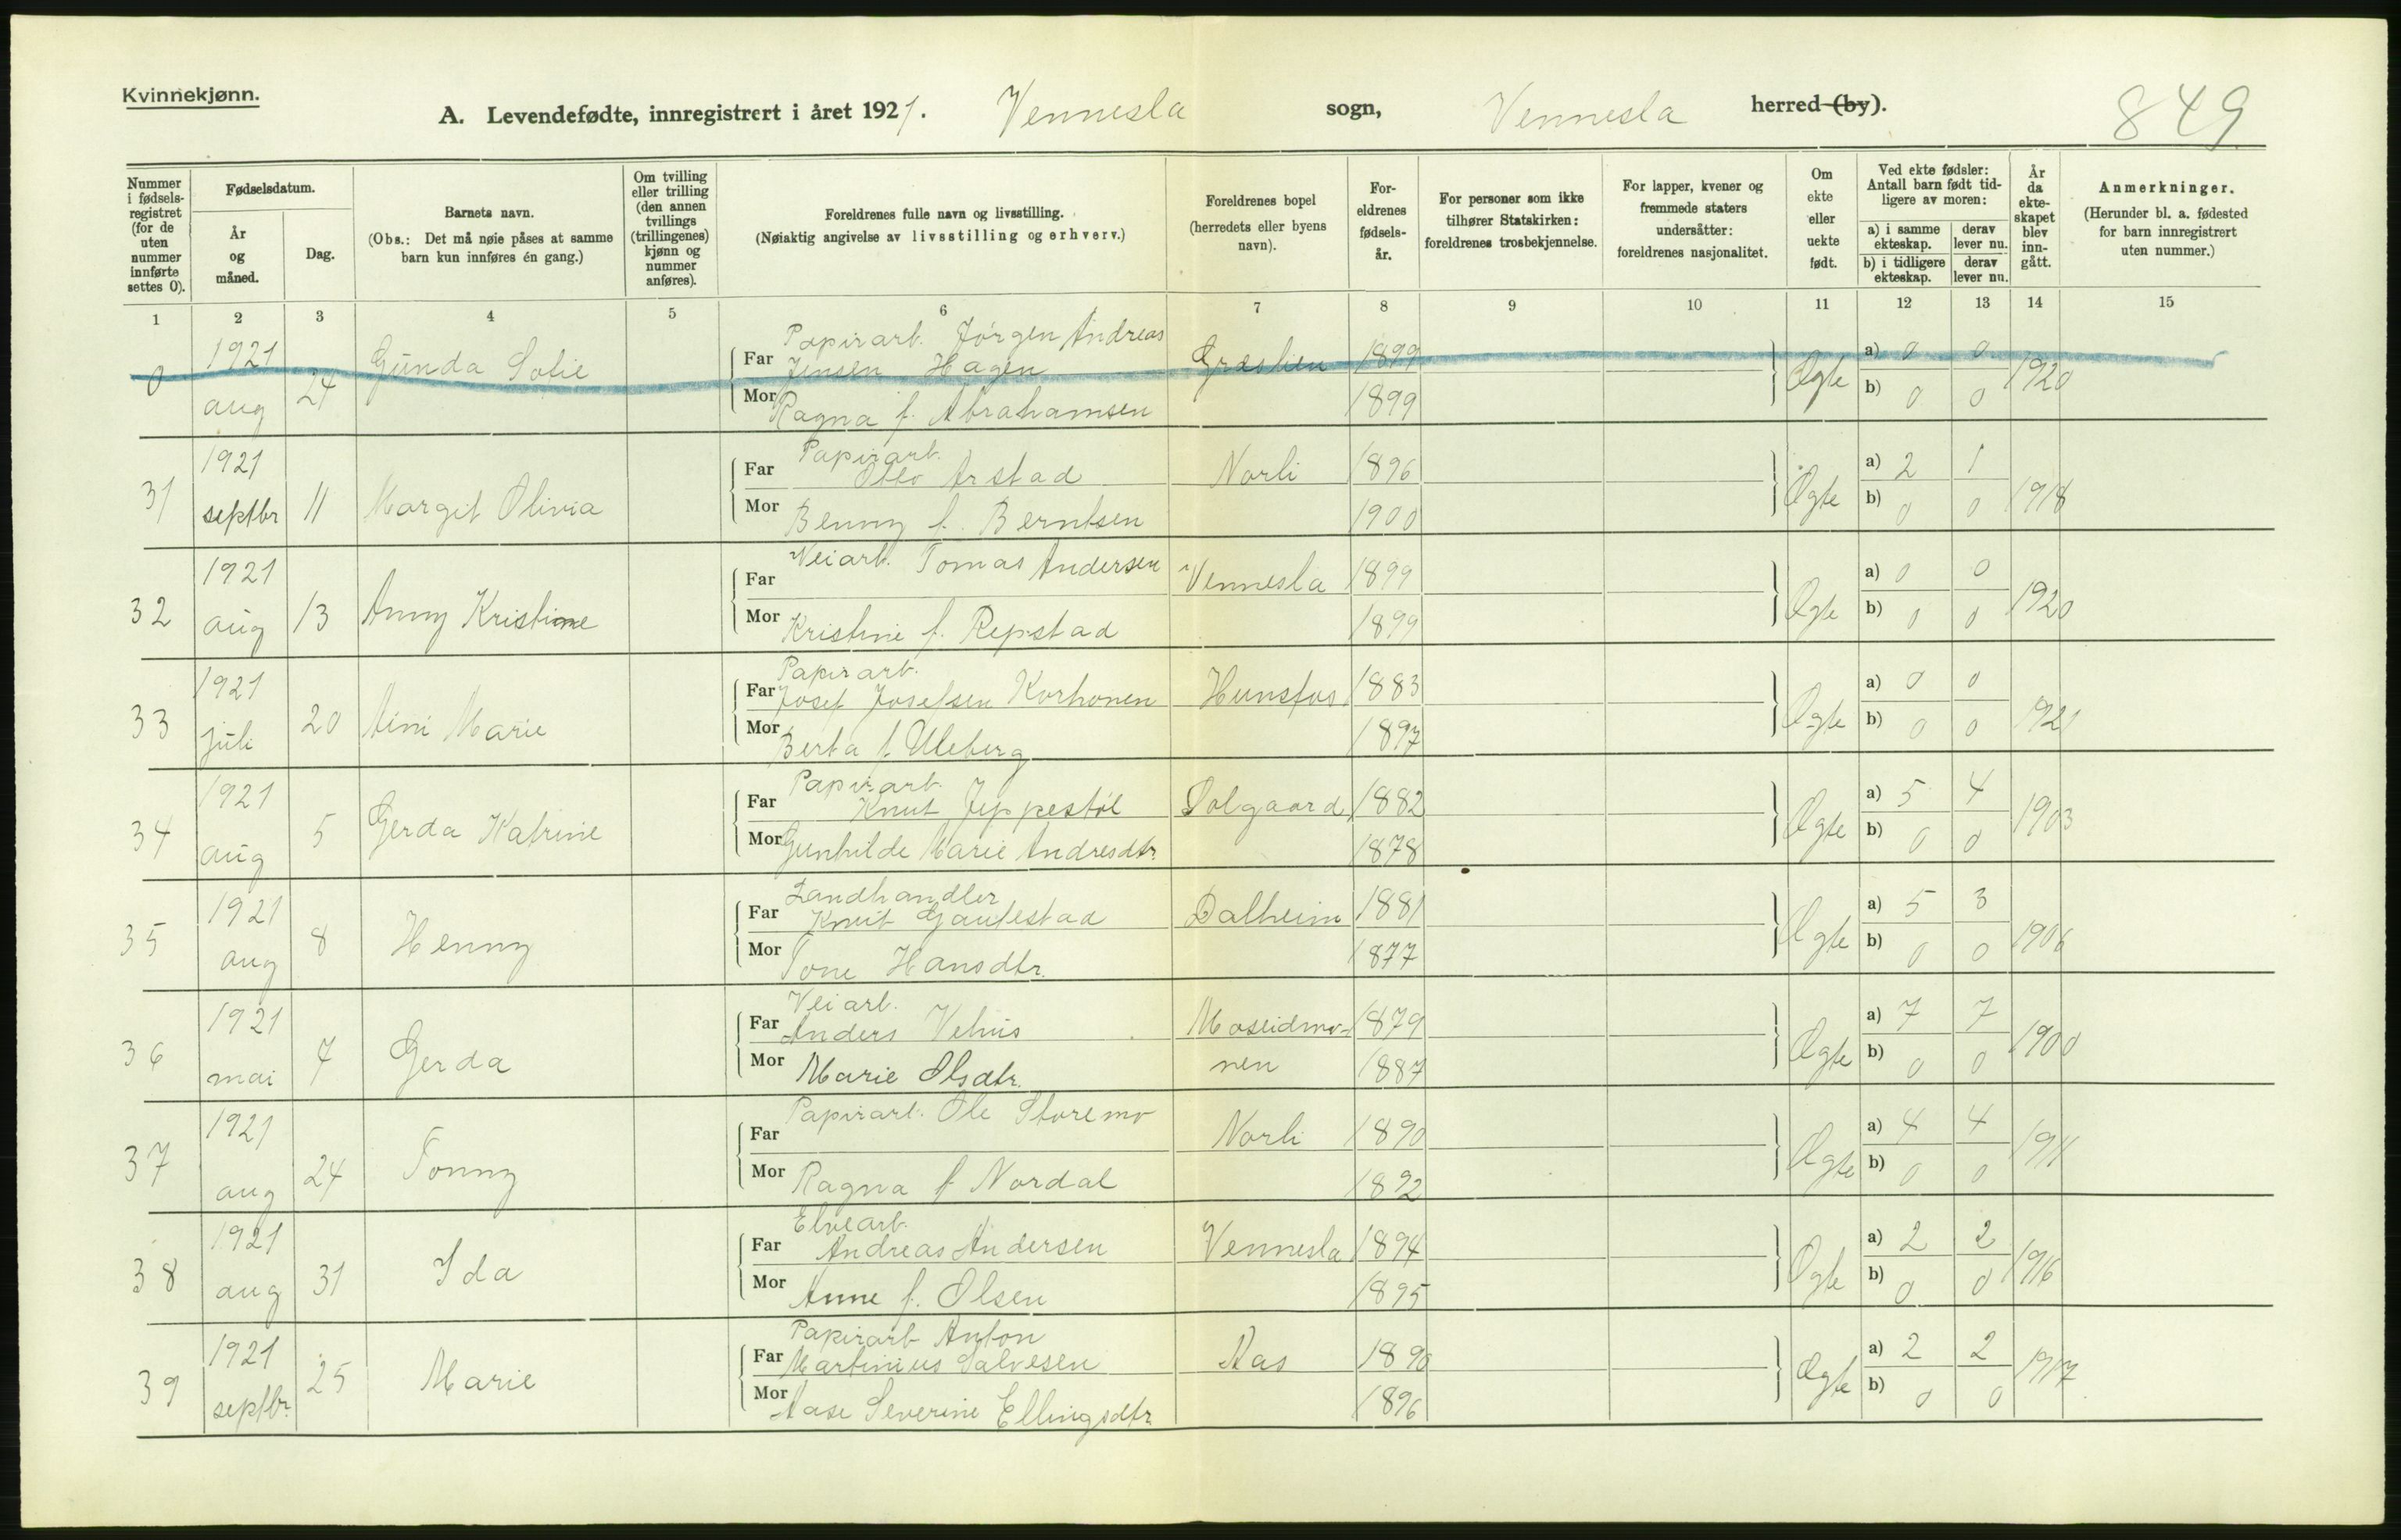 Kvinnekjønn.
A. Levendefødte, innregistrert i året 1921. Vennesla sogn, Vennesla herred (by). 849
Nummer i fødsels-registret (for de uten nummer innførte settes 0).
Fødselsdatum.
År og måned.
Dag.
Barnets navn.
(Obs.: Det må nøie påses at samme barn kun innføres én gang.)
Om tvilling eller trilling (den annen tvillings (trillingenes) kjønn og nummer anføres).
Foreldrenes fulle navn og livsstilling.
(Nøiaktig angivelse av livsstilling og erhverv.)
Foreldrenes bopel (herredets eller byens navn).
For-eldrenes fødsels-år.
For personer som ikke tilhører Statskirken: foreldrenes trosbekjennelse.
For lapper, kvener og fremmede staters undersåtter: foreldrenes nasjonalitet.
Om ekte eller uekte født.
Ved ekte fødsler: Antall barn født tid-ligere av moren:
a) i samme ekteskap. derav lever nu.
b) i tidligere ekteskap. derav lever nu.
År da ekte-skapet blev inn-gått.
Anmerkninger.
(Herunder bl. a. fødested for barn innregistrert uten nummer.)
1 2 3 4 5 6 7 8 9 10 11 12 13 14 15
Papirarb. Jørgen Andreas
0 1921 aug 24 Gunda Sofie Far Jensen Hagen Græslien 1899 Ægte a) 0 0 1920
Mor Ragna f. Abrahamsen 1899 b) 0 0
Papirarb.
31 1921 septbr 11 Margit Olivia Far Olav Arstad Norli 1896 Ægte a) 2 1 1918
Mor Benny f. Berntsen 1900 b) 0 0
32 1921 aug 13 Anny Kristine Far Veiarb. Tomas Andersen Vennesla 1899 Ægte a) 0 0 1920
Mor Kristine f. Repstad 1899 b) 0 0
Papirarb.
33 1921 juli 20 Aini Marie Far Josef Josefsen Korhonen Hunsfos 1883 Ægte a) 0 0 1921
Mor Berta f. Uleberg 1897 b) 0 0
Papirarb.
34 1921 aug 5 Gerda Katrine Far Knut Jeppestøl Solgaard 1882 Ægte a) 5 4 1903
Mor Gunhilde Marie Andresdtr. 1878 b) 0 0
Landhandler
35 1921 aug 8 Henny Far Knut Gautestad Dalheim 1881 Ægte a) 5 3 1906
Mor Tone Hansdtr. 1877 b) 0 0
Veiarb.
36 1921 mai 7 Gerda Far Anders Vehus Moseidmo- 1879 Ægte a) 7 7 1900
Mor Marie Olsdtr. nen 1887 b) 0 0
37 1921 aug 24 Tonny Far Papirarb. Ole Storemo Norli 1890 Ægte a) 4 4 1911
Mor Ragna f Nordal 1892 b) 0 0
Elvearb.
38 1921 aug 31 Ida Far Andreas Andersen Vennesla 1894 Ægte a) 2 2 1916
Mor Anne f. Olsen 1895 b) 0 0
Papirarb Anton
39 1921 septbr. 25 Marie Far Martinius Salvesen Aas 1890 Ægte a) 2 2 1917
Mor Aase Severine Ellingsdtr. 1896 b) 0 0